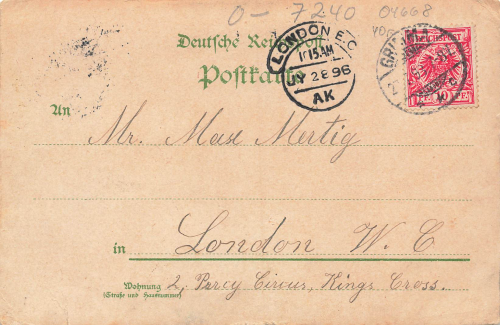 0-7240 04668
Deutsche Reichspost
Postkarte
LONDON E.C
1015AM
28 96
AK
REICHSPOST
An Mr. Max Mertig
in London W. C
Wohnung 2, Percy Circus, Kings Cross.
(Straße und Hausnummer)